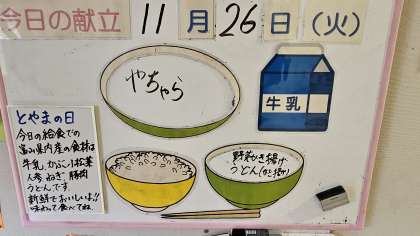 今日の献立 11月26日(火)
やちゃら
牛乳
とやまの日
今日の給食での
富山県内産の食材は
牛乳、かぶ、小松菜
人参、ねぎ、豚肉
うどんです。
新鮮でおいしいよ!!
味わって食べてね。
野菜かき揚げ
うどん